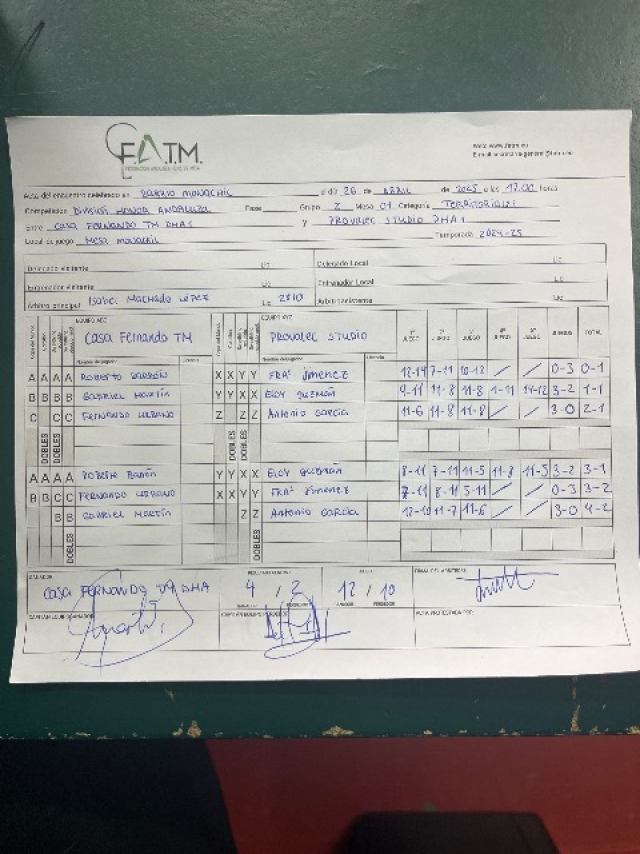 F.A.T.M.
Acta del encuentro celebrado en BARRIO MONACHIL el día 26 de ABRIL de 2025 a las 17:00 horas
Competición DIVISIÓN HONOR ANDALUZA Fase Grupo 2 Mesa 01 Categoría TERRITORIAL
Entre CASA FERNANDO TM DHA y PROVALEC STUDIO DHA
Local de juego MESA MONACHIL Temporada 2024-25
Delegado Visitante Lic Delegado Local Lic
Entrenador Visitante Lic Entrenador Local Lic
Arbitro principal Isabel Machado López Lic 2810 Arbitro asistente Lic
EQUIPO ABC Casa Fernando TM EQUIPO XYZ PROVALEC STUDIO 1º JUEGO 2º JUEGO 3º JUEGO 4º JUEGO 5º JUEGO JUEGOS TOTAL
Nombre del jugador Licencia Nombre del jugador Licencia
A A A A ROBERTO X X Y Y FRAª JIMENEZ 12-14 7-11 10-12 / / 0-3 0-1
B B B B GABRIEL MARTÍN Y Y X X ELOY GUZMÁN 9-11 11-8 11-8 1-11 14-12 3-2 1-1
C C C FERNANDO URBANO Z Z Z ANTONIO GARCÍA 11-6 11-8 11-8 / / 3-0 2-1
DOBLES DOBLES DOBLES DOBLES
A A A A ROBERTO Y Y X X ELOY GUZMÁN 8-11 7-11 11-5 11-8 11-5 3-2 3-1
B B C C FERNANDO URBANO X X Y Y FRAª JIMENEZ 7-11 8-11 5-11 / / 0-3 3-2
B B GABRIEL MARTÍN Z Z ANTONIO GARCÍA 12-10 11-7 11-6 / / 3-0 4-2
DOBLES DOBLES
GANADOR RESULTADO JUEGOS FIRMA DEL ARBITRO/A
CASA FERNANDO TM DHA 4 / 2 12 / 10
GANADOR PERDEDOR GANADOR PERDEDOR
CAPITÁN EQUIPO GANADOR CAPITÁN EQUIPO PERDEDOR ACTA PROTESTADA POR: